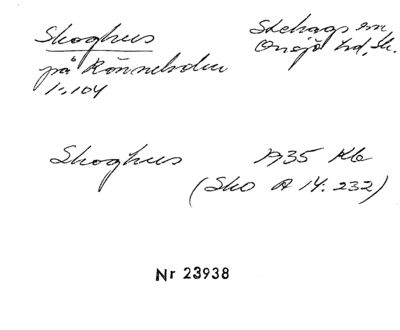 Skoghus Stehags sn,
på Rönneholm Onsjö hd, Sk.
1:104
Skoghus 1935 Kb
(Sko A 14:232)
Nr 23938